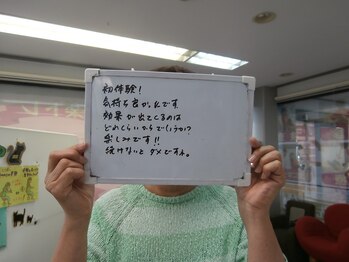 初体験!
気持ち良かったです
効果が出てくるのは
どのくらいからでしょうか?
楽しみです!!
続けないとダメですね。